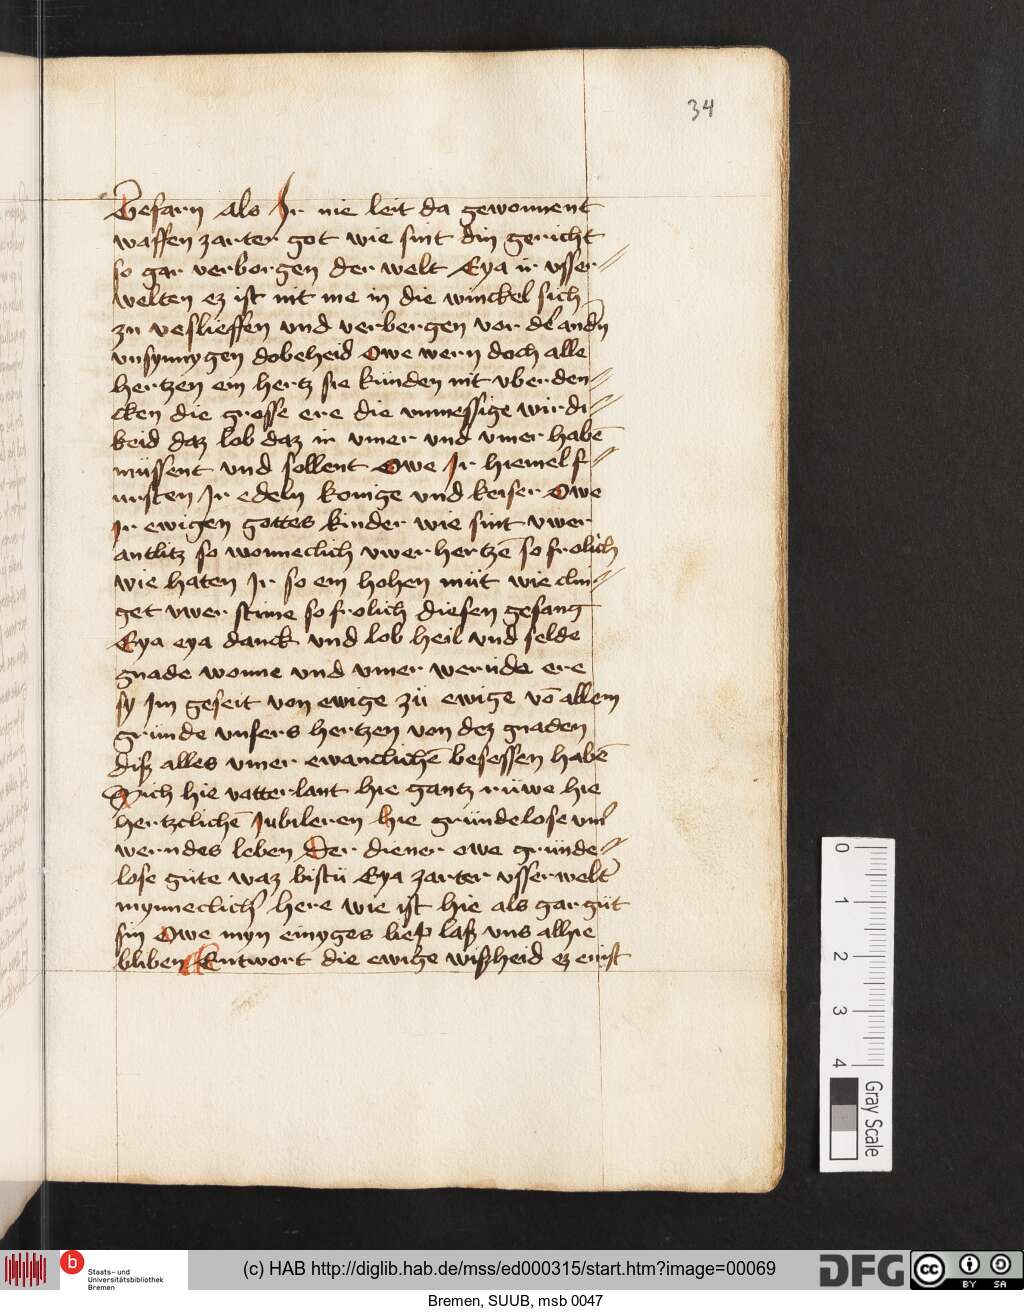 34
Gefarn als Ir nie leit da gewonnent
waffen zarter got wie sint din gericht
so gar verborgen der welt Eya ir vsser⸗
welten ez ist nit me in die winckel sich
zu veslieffen vnd verbergen vor dē andn̄
vnsynnygen dobeheid Owe wern doch alle
hertzen ein hertz sie künden nit vberden⸗
cken die grosse ere die vnmessige wirdi⸗
keid daz lob daz ir vmer vnd vmer habē
müssent vnd sollent Owe Ir hiemelf⸗
ursten Ir edeln konige vnd keiser Owe
Ir ewigen gottes kinder wie sint vwer
antlitz so wonneclich vwer hertzē so frolich
wie haten Ir so ein hohen müt wie clin⸗
get vwer stime so frolich diesen gesang
Eya eya danck vnd lob heil vnd selde
gnade wonne vnd vmer werude ere
sy Im geseit von ewige zů ewige vō allem
gründe vnsers hertzen von dez gnaden
diß alles vmer ewanclichē besessen habē
Sich hie vatterlant hie gantz rüwe hie
hertzclichē Iubileren hie gründelose vm̄
werndes leben Der diener owe gründe⸗
lose güte waz bistü Eya zarter vsserwelt̄
mynneclich̄ here wie ist hie als gar güt
sin Owe myn einyges liep laß vns alhie
bliben Entwort die ewige wißheid ez enist
0
1
2
3
4
Gray Scale
b
Staats- und
Universitätsbibliothek
Bremen
(c) HAB http://diglib.hab.de/mss/ed000315/start.htm?image=00069
DFG
cc
BY SA
Bremen, SUUB, msb 0047